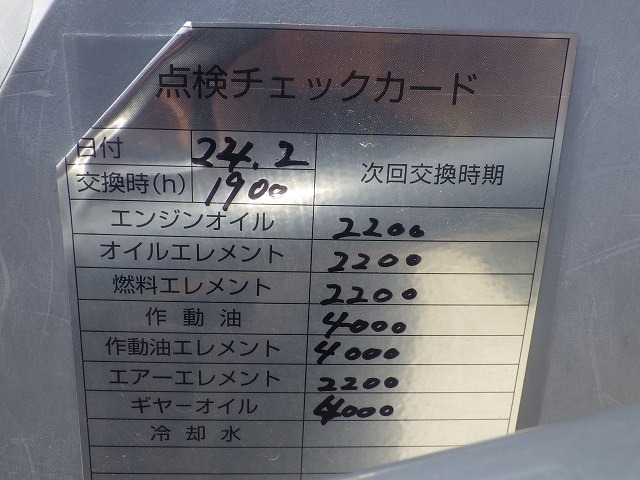 点検チェックカード
日付 24.2 次回交換時期
交換時(h) 1900
エンジンオイル 2200
オイルエレメント 2200
燃料エレメント 2200
作動油 4000
作動油エレメント 4000
エアーエレメント 2200
ギヤーオイル 4000
冷却水